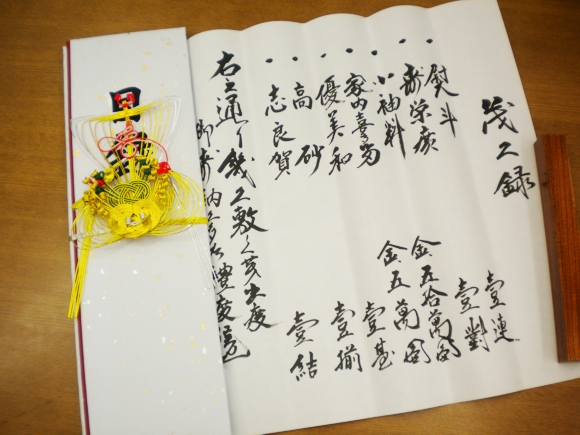 茂久録
熨斗 壹連
寿栄廣 壹對
小袖料 金五拾萬圓
家内喜多留 金五萬圓
優美和 壹基
高砂 壹揃
志良賀 壹結
右之通り幾久敷く芽出度
御寿納
目